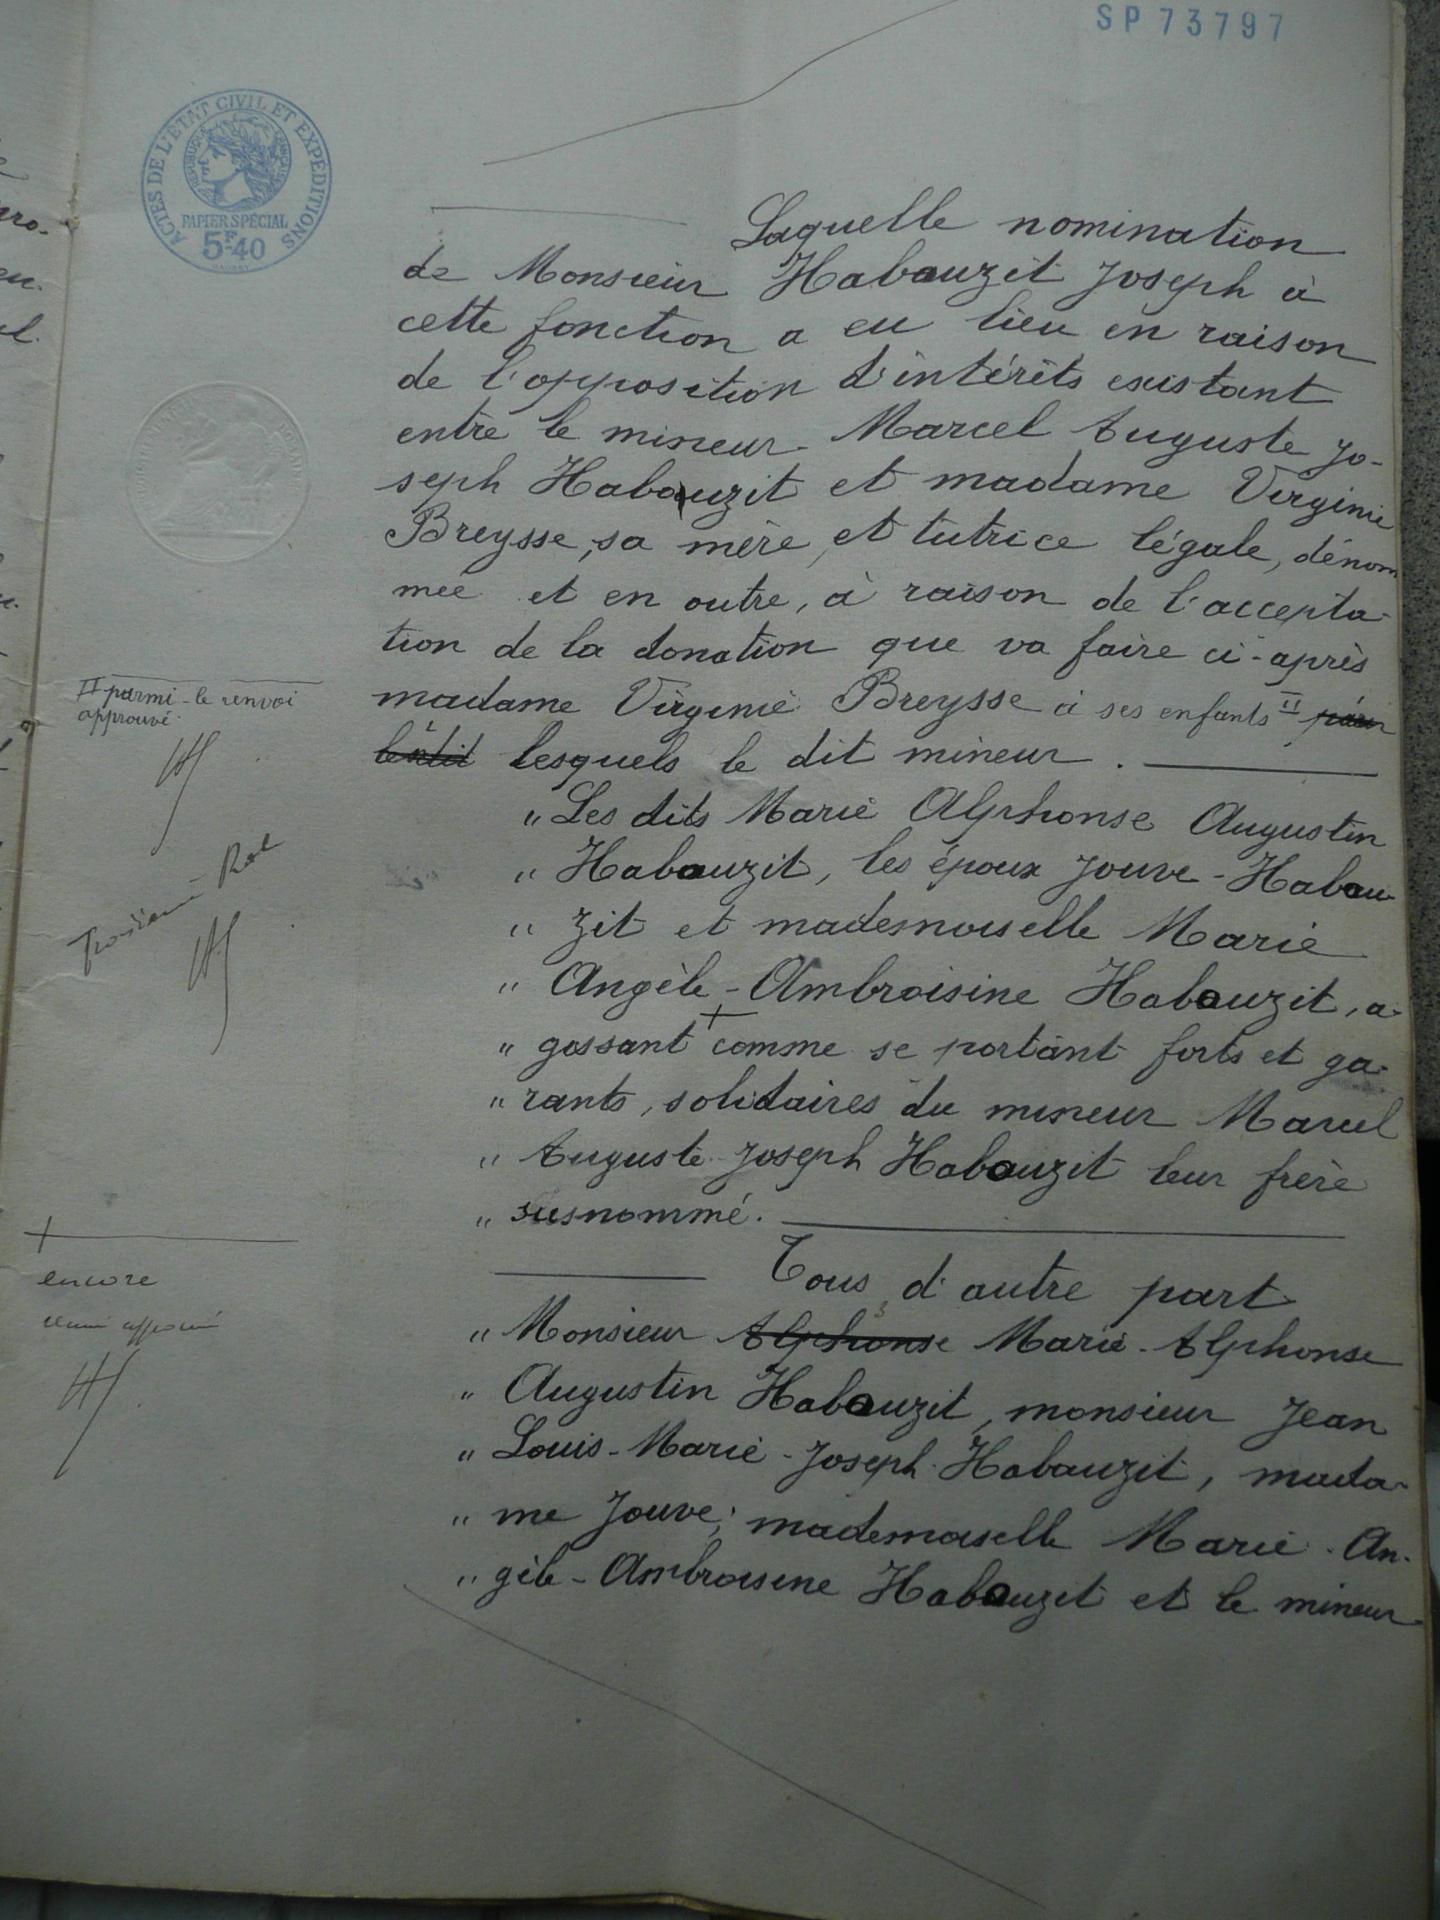 SP 73797
ACTES DE L'ÉTAT CIVIL ET EXPÉDITIONS
RÉPUBLIQUE FRANÇAISE
PAPIER SPÉCIAL
5F.40
Laquelle nomination
de Monsieur Habauzit Joseph à
cette fonction a eu lieu en raison
de l'opposition d'intérêts existant
entre le mineur Marcel Auguste Jo-
seph Habauzit et madame Virginie
Breysse, sa mère, et tutrice légale, dénom
mée et en outre, à raison de l'accepta-
tion de la donation que va faire ci-après
madame Virginie Breysse à ses enfants II
lesquels le dit mineur.
" Les dits Marie Alphonse Augustin
" Habauzit, les époux Jouve-Habau-
" zit et mademoiselle Marie
" Angèle-Ambroisine Habauzit, a-
" gissant + comme se portant forts et ga-
" rants, solidaires du mineur Marcel
" Auguste Joseph Habauzit leur frère
" susnommé.
Tous d'autre part
" Monsieur Alphonse Marie-Alphonse
" Augustin Habauzit, monsieur Jean
" Louis-Marie-Joseph Habauzit, mada-
" me Jouve; mademoiselle Marie-An-
" gèle-Ambroisine Habauzit et le mineur
II parmi - le renvoi
approuvé
Troisième Rol
+
encore
renvoi approuvé